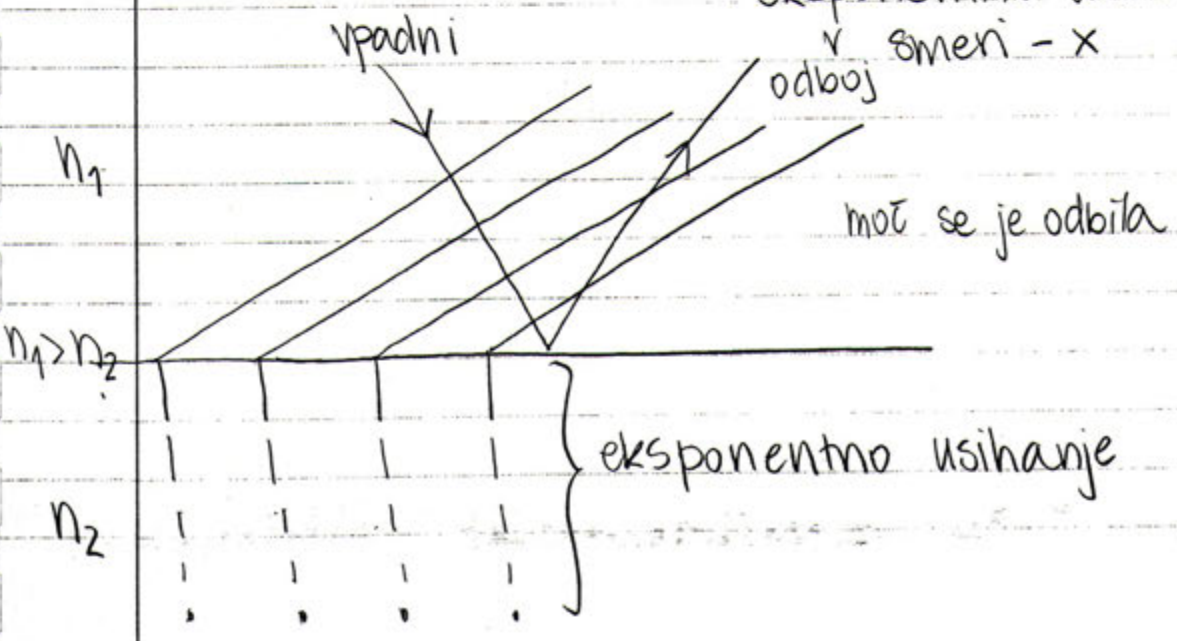 vpadni
v smeri - x
odboj
n₁
moč se je odbila
n₁>n₂
eksponentno usihanje
n₂